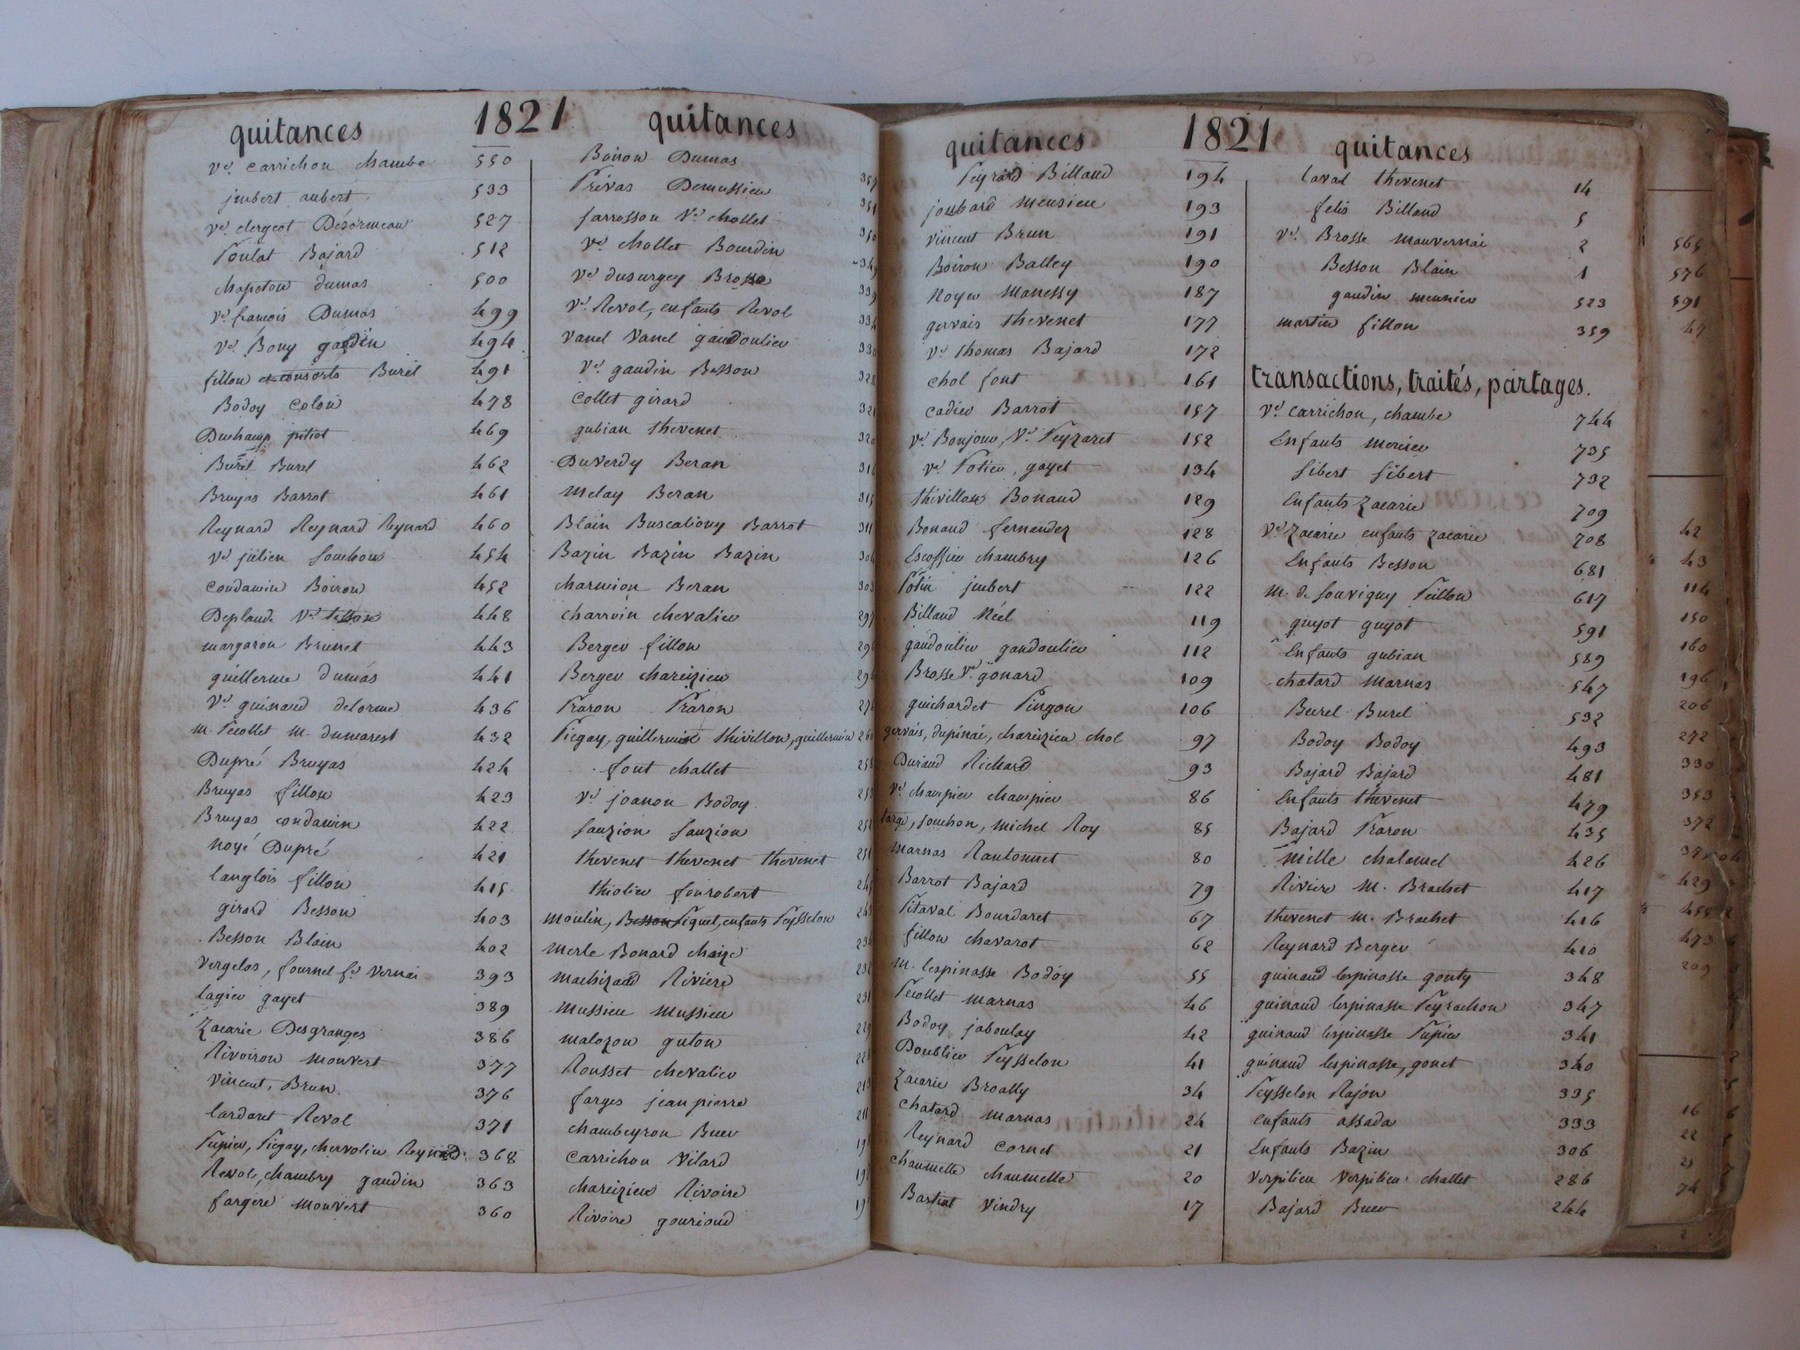 quitances 1821 quitances
ve. Carrichon Chambe 550
jmbert aubert 533
ve. clergeot Désormeau 527
Poulat Bajard 512
chapeton dumas 500
ve. francois Dumas 499
ve. Bony gaudin 494
fillon et consorts Burel 491
Bodoy Colon 478
Duchamp pitiot 469
Burel Burel 462
Bruyas Barrot 461
Reynard Reynard Reynard 460
ve. julien Souchon 454
Condamin Boiron 452
Deplaude ve. 448
margaron Brunet 443
guillerme dumas 441
ve. guinand delorme 436
m. Pecollet m. dumarest 432
Dupré Bruyas 424
Bruyas fillon 423
Bruyas condamin 422
Noyé Dupré 421
langlois fillon 415
girard Besson 403
Besson Blain 402
Vergelas, fournel fe. Vernai 393
lagier gayet 389
Zacarie Desgranges 386
Rivoiron mouvert 377
Vincent, Brun 376
lardaret Revol 371
Pupier, Piegay, chervolin Reynard 368
Revol, chambry gaudin 363
fargere mouvert 360
Boiron Dumas
Privas Demussieu
farrosson ve. chollet
ve. chollet Bourdin
ve. dusurgey Brosse
ve. Revol, enfants Revol
Vanel Vanel gaudoulier
ve. gaudin Besson
Collet girard
gubian thevenet
Duverdy Beran
melay Beran
Blain Buscationy Barrot
Bazin Bazin Bazin
charmion Beran
charroin chevalier
Berger fillon
Berger chareizieu
Fraron Fraron
Piegay, guillermin thivillon, guillermin
font challet
ve. joanon Bodoy
Sauzion Sauzion
thevenet thevenet thevenet
thiolier fourobert
moulin, Besson Piquet, enfants Peysselon
merle Bonard chaize
machizaud Riviere
mussieu mussieu
malozon guton
Rousset chevalier
farges jean pierre
chambeyron Buer
Carrichon Vilard
chareizieu Rivoire
Rivoire gourioud
quitances 1821 quitances
Peyrard Billaud 194
joubard meusieu 193
vincent Brun 191
Boiron Balley 190
Noyer Manessy 187
gervais thevenet 177
ve. thomas Bajard 172
chol font 161
cadier Barrot 157
ve. Bonjour, ve. Peyzaret 152
ve. Potier, gayet 134
thivillon Bonaud 129
Bonaud fernandez 128
Escoffier chambry 126
Potin jmbert 122
Billaud Néel 119
gaudoulier gaudoulier 112
Brosse ve. gonard 109
guichardet Pingon 106
gervais, dupinai, chareizieu chol 97
Durand Richard 93
ve. champier champier 86
large, souchon, michel Roy 85
marnas Rantonnet 80
Barrot Bajard 79
Pitaval Bourdaret 67
fillon chavarot 62
m. lespinasse Bodoy 55
Pecollet marnas 46
Bodoy jaboulay 42
Doublier Peysselon 41
Zacarie Broally 34
Chatard marnas 24
Reynard Cornet 21
Chaumette chaumette 20
Bastiat Vindry 17
Laval thevenet 14
felis Billaud 5
ve. Brosse mauvernai 2
Besson Blain 1
gaudin meunier 523
martin fillon 359
transactions, traités, partages.
ve. Carrichon, chambe 744
Enfants mercier 735
Sibert Sibert 732
Enfants zacarie 709
ve. Zacarie enfants zacarie 708
Enfants Besson 681
m. de Souvigny Peillon 617
guyot guyot 591
Enfants gubian 589
chatard marnas 547
Burel Burel 532
Bodoy Bodoy 493
Bajard Bajard 481
Enfants thevenet 479
Bajard Fraron 435
mille chalumel 426
Riviere m. Brachet 417
thevenet m. Brachet 416
Reynard Berger 410
guinaud lespinasse gouty 348
guinaud lespinasse Peyrachon 347
guinaud lespinasse Pupier 341
guinaud lespinasse, gonet 340
Peysselon Rajon 335
enfants assada 333
Enfants Bazin 306
Verpilieu Verpilieu challet 286
Bajard Buer 244